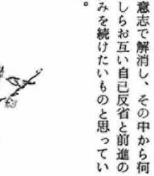 意志で解消し、その中から何
しらお互い自己反省と前進の
みを続けたいものと思ってい
る。